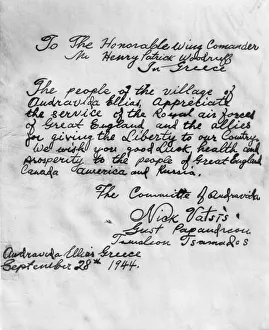 To The Honorable Wing Comander
Mr Henry Patrick Woodruff
In Greece
The people of the village of
Andravida Ellias, Appreciate
the service of the Royal air forces
of Great England and the allies
for giving the Liberty to our Coutry.
We wish you good Luck, health and
prosperity to the people of Great England
Canada America and Russia.
The Committe of Andravida
Nick Vatsis
Gust Papandreou
Timoleon Tsamados
Andravida Ilias Greece
September 28th 1944.